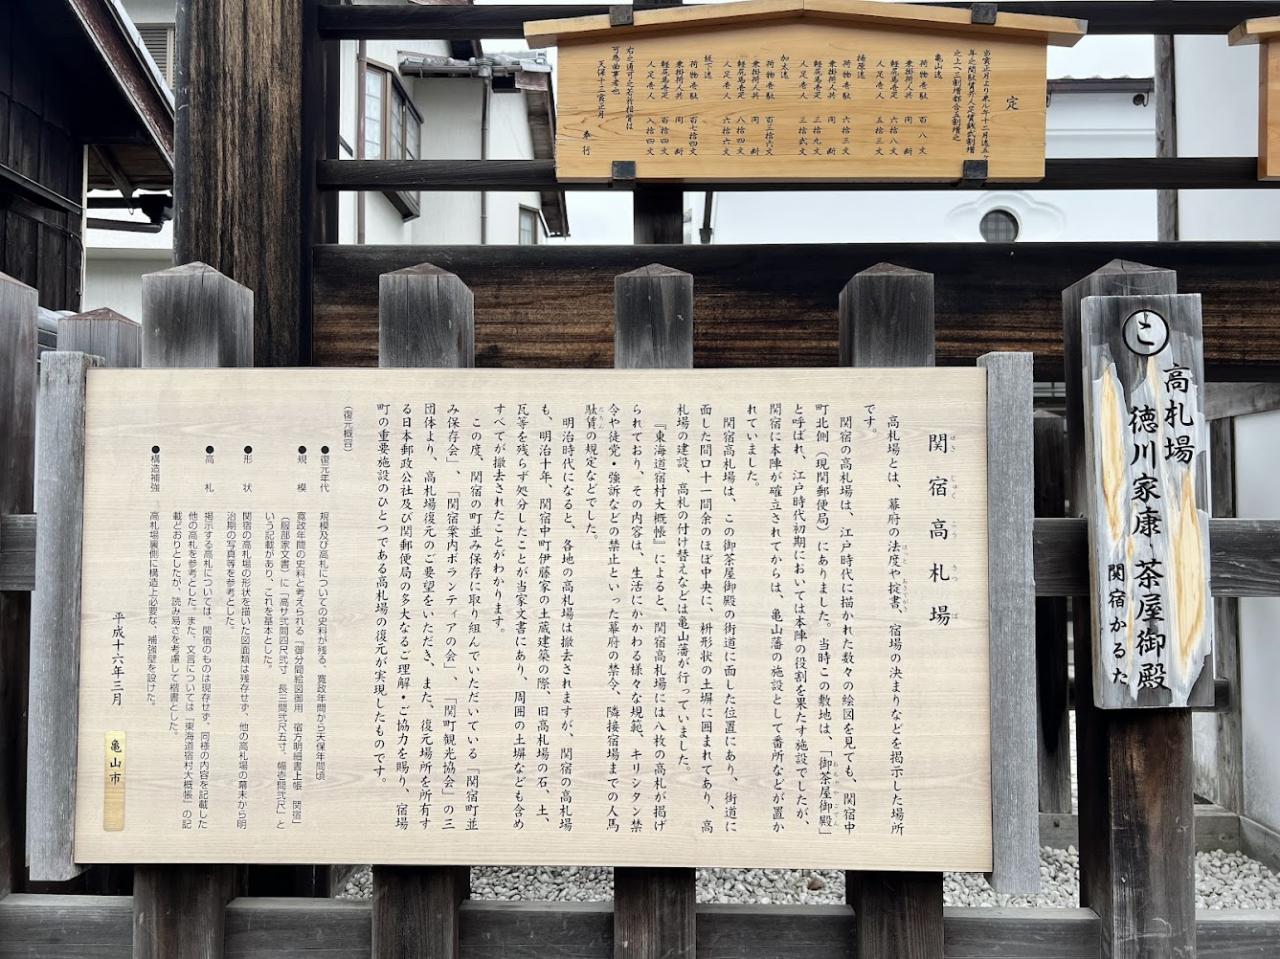 定
当寅正月より来ル午十二月迄五ヶ
年之間駄賃并人足賃銭弐割増
之上へ三割増都合五割増之
亀山迄
荷物壱駄 百八文
乗掛荷人共 同断
軽尻馬壱疋 六拾八文
人足壱人 五拾三文
椋原迄
荷物壱駄 六拾三文
乗掛荷人共 同断
軽尻馬壱疋 三拾九文
人足壱人 三拾弐文
加太迄
荷物壱駄 百三拾六文
乗掛荷人共 同断
軽尻馬壱疋 八拾四文
人足壱人 六拾六文
坂下迄
荷物壱駄 百七拾四文
乗掛荷人共 同断
軽尻馬壱疋 百拾四文
人足壱人 八拾四文
右之通可取之若於相背は
可為曲事者也
天保十三寅正月
奉行
こ
高札場
徳川家康・茶屋御殿
関宿かるた
関宿高札場
せきじゅくこうさつば
高札場とは、幕府の法度や掟書、宿場の決まりなどを掲示した場所
です。
関宿の高札場は、江戸時代に描かれた数々の絵図を見ても、関宿中
町北側（現関郵便局）にありました。当時この敷地は、「御茶屋御殿」
と呼ばれ、江戸時代初期においては本陣の役割を果たす施設でしたが、
関宿に本陣が確立されてからは、亀山藩の施設として番所などが置か
れていました。
関宿高札場は、この御茶屋御殿の街道に面した位置にあり、街道に
面した間口十一間余のほぼ中央に、枡形状の土塀に囲まれてあり、高
札場の建設、高札の付け替えなどは亀山藩が行っていました。
『東海道宿村大概帳』によると、関宿高札場には八枚の高札が掲げ
られており、その内容は、生活にかかわる様々な規範、キリシタン禁
令や徒党・強訴などの禁止といった幕府の禁令、隣接宿場までの人馬
駄賃の規定などでした。
明治時代になると、各地の高札場は撤去されますが、関宿の高札場
も、明治十年、関宿中町伊藤家の土蔵建築の際、旧高札場の石、土、
瓦等を残らず処分したことが当家文書にあり、周囲の土塀なども含め
すべてが撤去されたことがわかります。
この度、関宿の町並み保存に取り組んでいただいている「関宿町並
み保存会」、「関宿案内ボランティアの会」、「関町観光協会」の三
団体より、高札場復元のご要望をいただき、また、復元場所を所有す
る日本郵政公社及び関郵便局の多大なるご理解・ご協力を賜り、宿場
町の重要施設のひとつである高札場の復元が実現したものです。
（復元概容）
●復元年代 規模及び高札についての史料が残る、寛政年間から天保年間頃
●規模 寛政年間の史料と考えられる「御分間絵図御用 宿方明細書上帳 関宿」
（服部家文書）に「高サ弐間四尺弐寸 長三間弐尺五寸、幅壱間弐尺」と
いう記載があり、これを基本とした。
●形状 関宿の高札場の形状を描いた図面類は残存せず、他の高札場の幕末から明
治期の写真等を参考とした。
●高札 掲示する高札については、関宿のものは現存せず、同様の内容を記載した
他の高札を参考とした。また、文言については「東海道宿村大概帳」の記
載どおりとしたが、読み易さを考慮して楷書とした。
●構造補強 高札場裏側に構造上必要な、補強壁を設けた。
平成十六年三月
亀山市